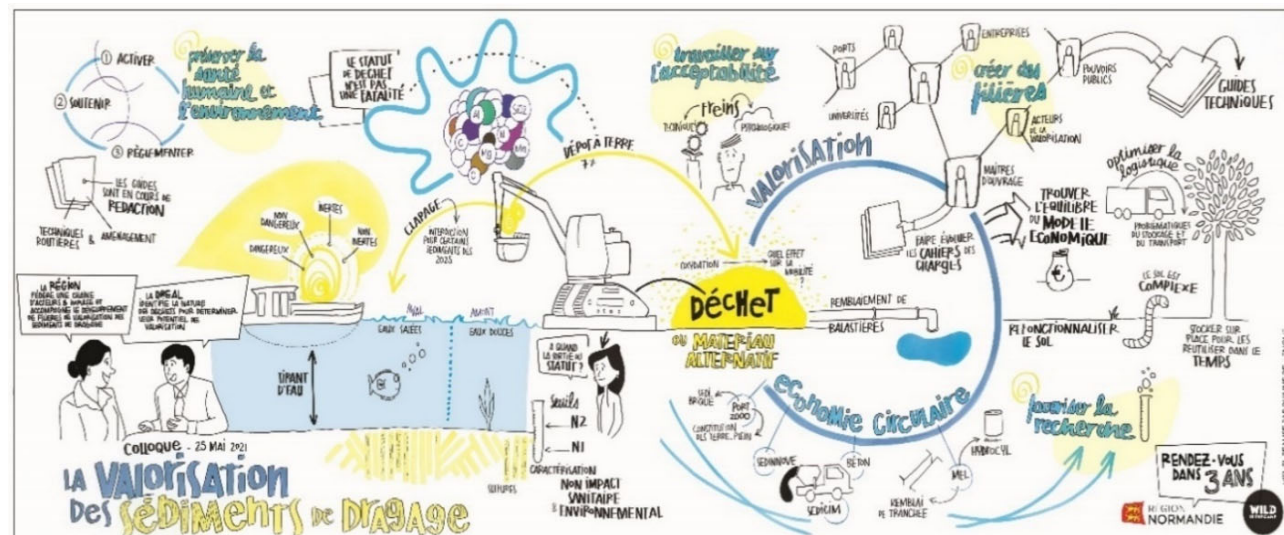 ① ACTIVER
② SOUTENIR
③ RÉGLEMENTER
préserver la
santé
humaine et
l'environnement
LE STATUT
DE DÉCHET
N'EST PAS
UNE FATALITÉ
LES GUIDES
SONT EN COURS DE
RÉDACTION
TECHNIQUES
ROUTIÈRES & AMÉNAGEMENT
DANGEREUX
NON
DANGEREUX
INERTES
NON
INERTES
CLAPAGE
INTERACTION
POUR CERTAINS
SÉDIMENTS DÈS
2025
DÉPÔT À TERRE
LA RÉGION
FÉDÈRE UNE CHAINE
D'ACTEURS &
ACCOMPAGNE LE DÉVELOPPEMENT
DE FILIÈRES DE VALORISATION DES
SÉDIMENTS DE DRAGAGE
LA DREAL
IDENTIFIE LA NATURE
DES DÉCHETS POUR DÉTERMINER
LEUR POTENTIEL DE
VALORISATION
TIRANT
D'EAU
AVAL
EAUX SALÉES
AMONT
EAUX DOUCES
À QUAND
LA SORTIE DU
STATUT ?
Seuils
N2
N1
CARACTÉRISATION
NON IMPACT
SANITAIRE
& ENVIRONNEMENTAL
COLLOQUE - 25 MAI 2021
LA VALORISATION
DES SÉDIMENTS DE DRAGAGE
travailler sur
l'acceptabilité
freins
TECHNIQUES
PSYCHOLOGIQUES
VALORISATION
OXYDATION
QUEL EFFET
SUR SA
MOBILITÉ
?
DÉCHET
OU MATÉRIAU
ALTERNATIF
REMBLAIEMENT DE
BALASTIÈRES
ÉCONOMIE CIRCULAIRE
SEDI
BRIQUE
PORT
2000
CONSTITUTION
DES TERRE-PLEIN
SEDINNOVE
BÉTON
SEDICIM
MEL
REMBLAI
DE TRANCHÉE
PORTS
ENTREPRISES
UNIVERSITÉS
créer des
filières
POUVOIRS
PUBLICS
GUIDES
TECHNIQUES
ACTEURS
DE LA
VALORISATION
MAÎTRES
D'OUVRAGE
FAIRE ÉVOLUER
LES CAHIERS DES
CHARGES
TROUVER
L'ÉQUILIBRE
DU MODÈLE
ÉCONOMIQUE
optimiser la
logistique
PROBLÉMATIQUES
DU STOCKAGE ET
DU TRANSPORT
LE SOL EST
COMPLEXE
REFONCTIONNALISER
LE SOL
STOCKER SUR
PLACE POUR LES
RÉUTILISER DANS LE
TEMPS
favoriser la
recherche
RENDEZ-VOUS
DANS 3 ANS
RÉGION
NORMANDIE
WILD